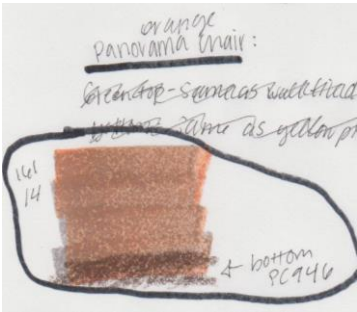 orange
panorama hair:
Green top - same as
same as yellow
161
14
← bottom
PC946